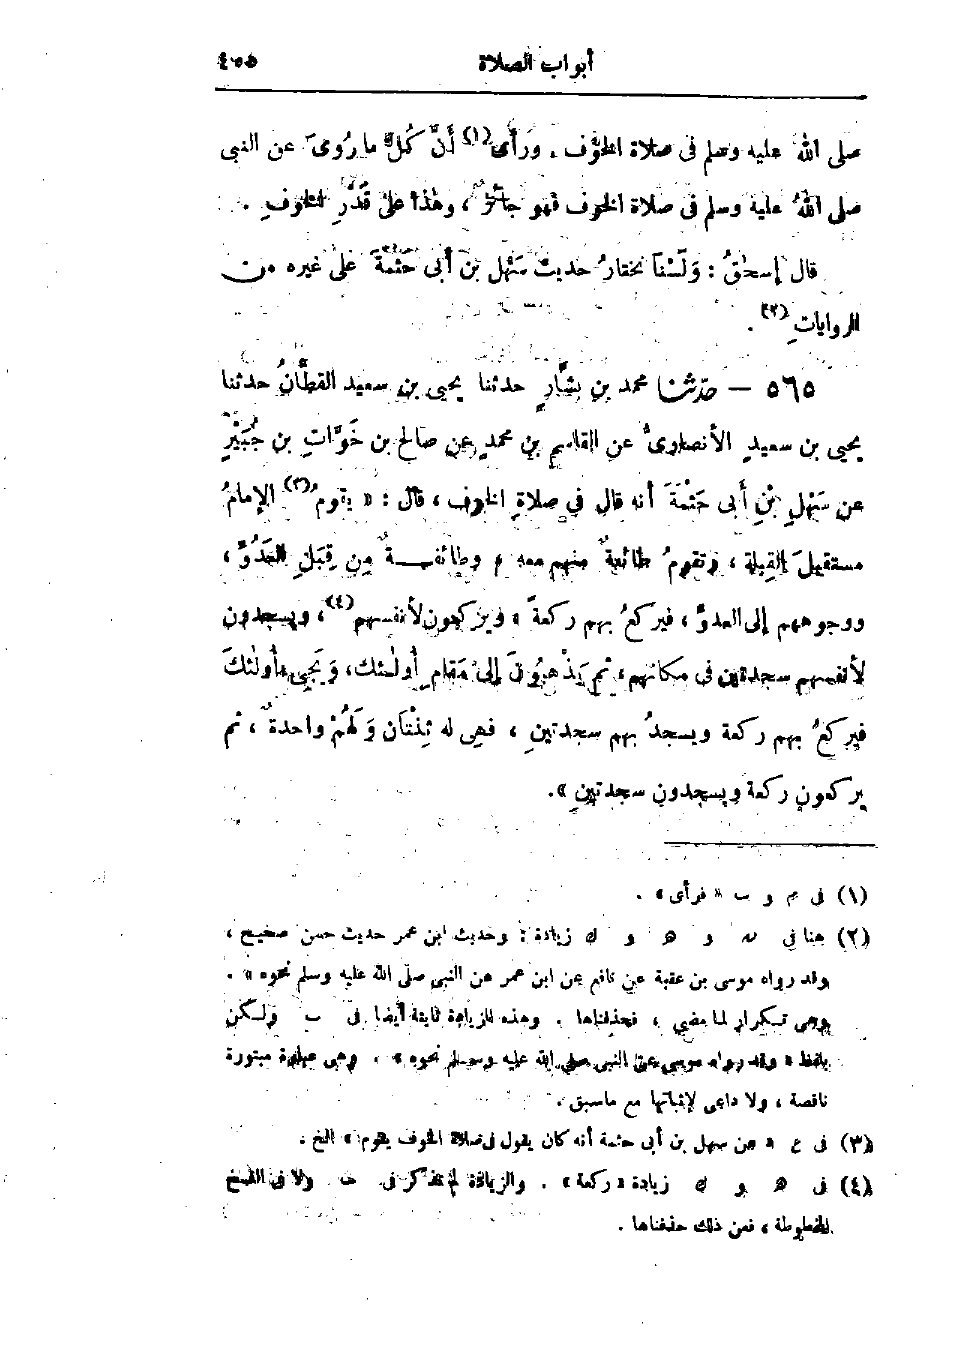 أبواب الصلاة ٤٥٥
صلى اللهُ عليه وسلم فى صلاة الخوف . ورَأَى (١) أَنَّ كُلَّ ما رُوِىَ عن النبى
صلى اللهُ عليه وسلم فى صلاة الخوف فهو جائزٌ ، وهٰذا علىٰ قَدْرِ الخوفِ .
قال إسحٰقُ : وَلَسْنَا نختارُ حديثَ سَهْلِ بن أَبى حَثْمَةَ علىٰ غيره من
الروايات (٢) .
٥٦٥ — حدثنا محمد بن بشَّارٍ حدثنا يحيى بن سعيد القطَّانُ حدثنا
يحيى بن سعيدٍ الأنصارىُّ عن القاسمِ بن محمدٍ عن صالح بن خَوَّاتِ بن جُبَيْرٍ
عن سَهْلِ بْنِ أَبى حَثْمَةَ أنه قال فى صلاةِ الخوف ، قال : « يقومُ (٣) الإمامُ
مستقبلَ القِبلة ، وتقومُ طائفةٌ منهم معه ، وطائفــةٌ مِن قِبَلِ العَدُوِّ ،
ووجوههم إلى العدوِّ ، فيركعُ بهم ركعةً ، ويركعون لأنفسهم (٤) ، ويسجدون
لأنفسهم سجدتين فى مكانهم ، ثم يَذْهبُونَ إلىٰ مَقامِ أُولٰئك ، وَيَجىءُ أُولٰئكَ
فيركعُ بهم ركعة ويسجدُ بهم سجدتينِ ، فهى له ثِنْتَانِ وَلَهُمْ واحدةٌ ، ثم
يركعون ركعة ويسجدون سجدتينِ » .
(١) فى م و ب « فرأى » .
(٢) هنا فى و هـ و ك زيادة : « وحديث ابن عمر حديث حسن صحيح ،
وقد رواه موسى بن عقبة عن نافع عن ابن عمر عن النبى صلى الله عليه وسلم نحوه » .
وهى تكرار لما مضى ، فحذفناها . وهذه الزيادة ثابتة أيضا فى ب ولكن
بلفظ « وقد رواه موسى عن النبى صلى الله عليه وسلم نحوه » . وهى عبارة مبتورة
ناقصة ، ولا داعى لإثباتها مع ماسبق .
(٣) فى ع « عن سهل بن أبى حثمة أنه كان يقول فى صلاة الخوف يقوم » الخ .
(٤) فى هـ و ك زيادة « ركعة » . والزيادة لم تذكر فى ولا فى النسخ
المخطوطة ، فمن ذلك حذفناها .